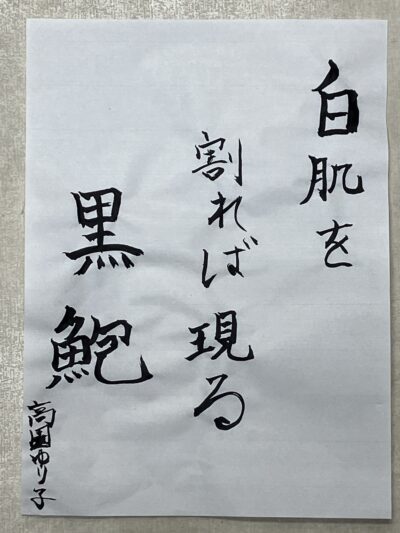 白肌を
割れば現る
黒鮑
高田ゆり子